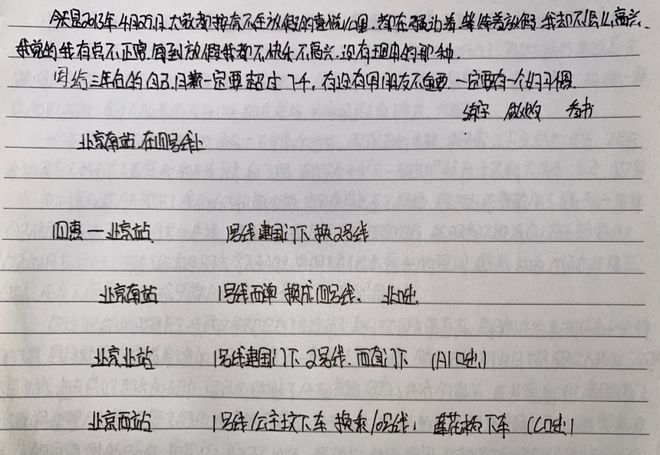 今天是2013年4月29日 大家都抱有不在放假的喜悦心里,都在强边着等待着放假 我却不怎么高兴.
我觉的我有点不正常 周到放假我却不快乐不高兴.没有理由的那种.
因为 三年后的自己月薪一定要超过7千,有没有男朋友不重要 一定要有一个好习惯.
练字 做收 看书
北京南站 在四号线上
四惠—北京站 1号线建国门下换2号线
北京南站 1号线西单 换成四号线、 北口出.
北京北站 1号线建国门下 2号线.西直门下 (A1口出)
北京西站 1号线公主坟下车 换乘10号线, 莲花桥下车 (C口出)